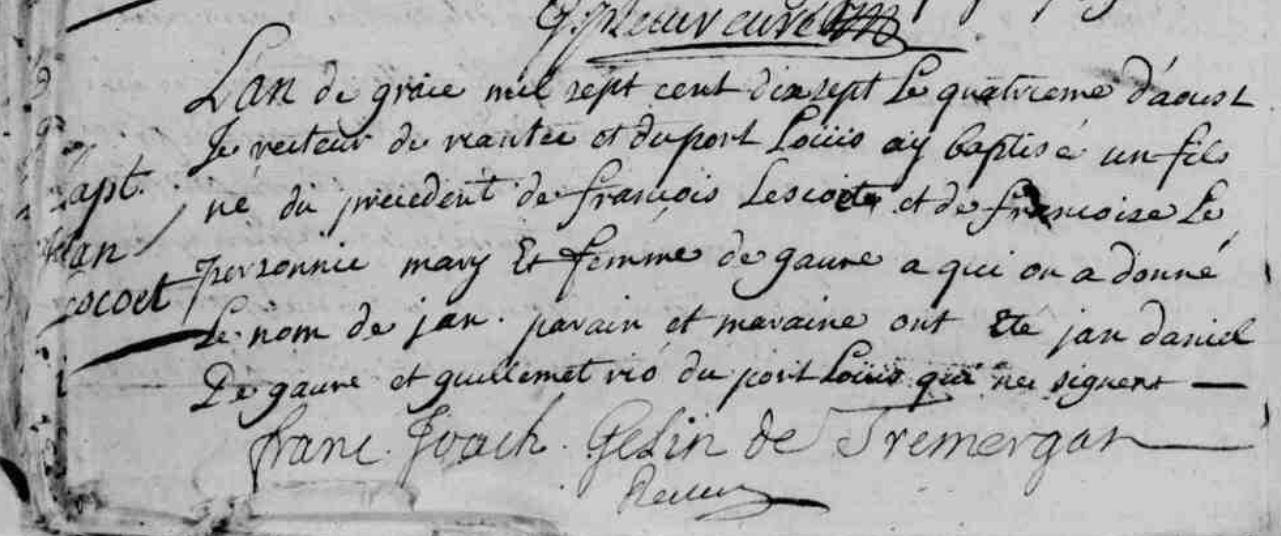 curé
L'an de grace mil sept cent dix sept le quatrieme d'aoust
Je recteur de riantec et du port Louis ay baptisé un fils
Bapt. né du precedent de francois Lescoet et de francoise Le
jan personnic mary Et femme de gavre a qui on a donné
Lescoet
Le nom de jan. parain et maraine ont Eté jan daniel
De gavre et guillemet rio du port Louis qui ne signent —
franc. Joach. Geslin de Tremergat
Recteur